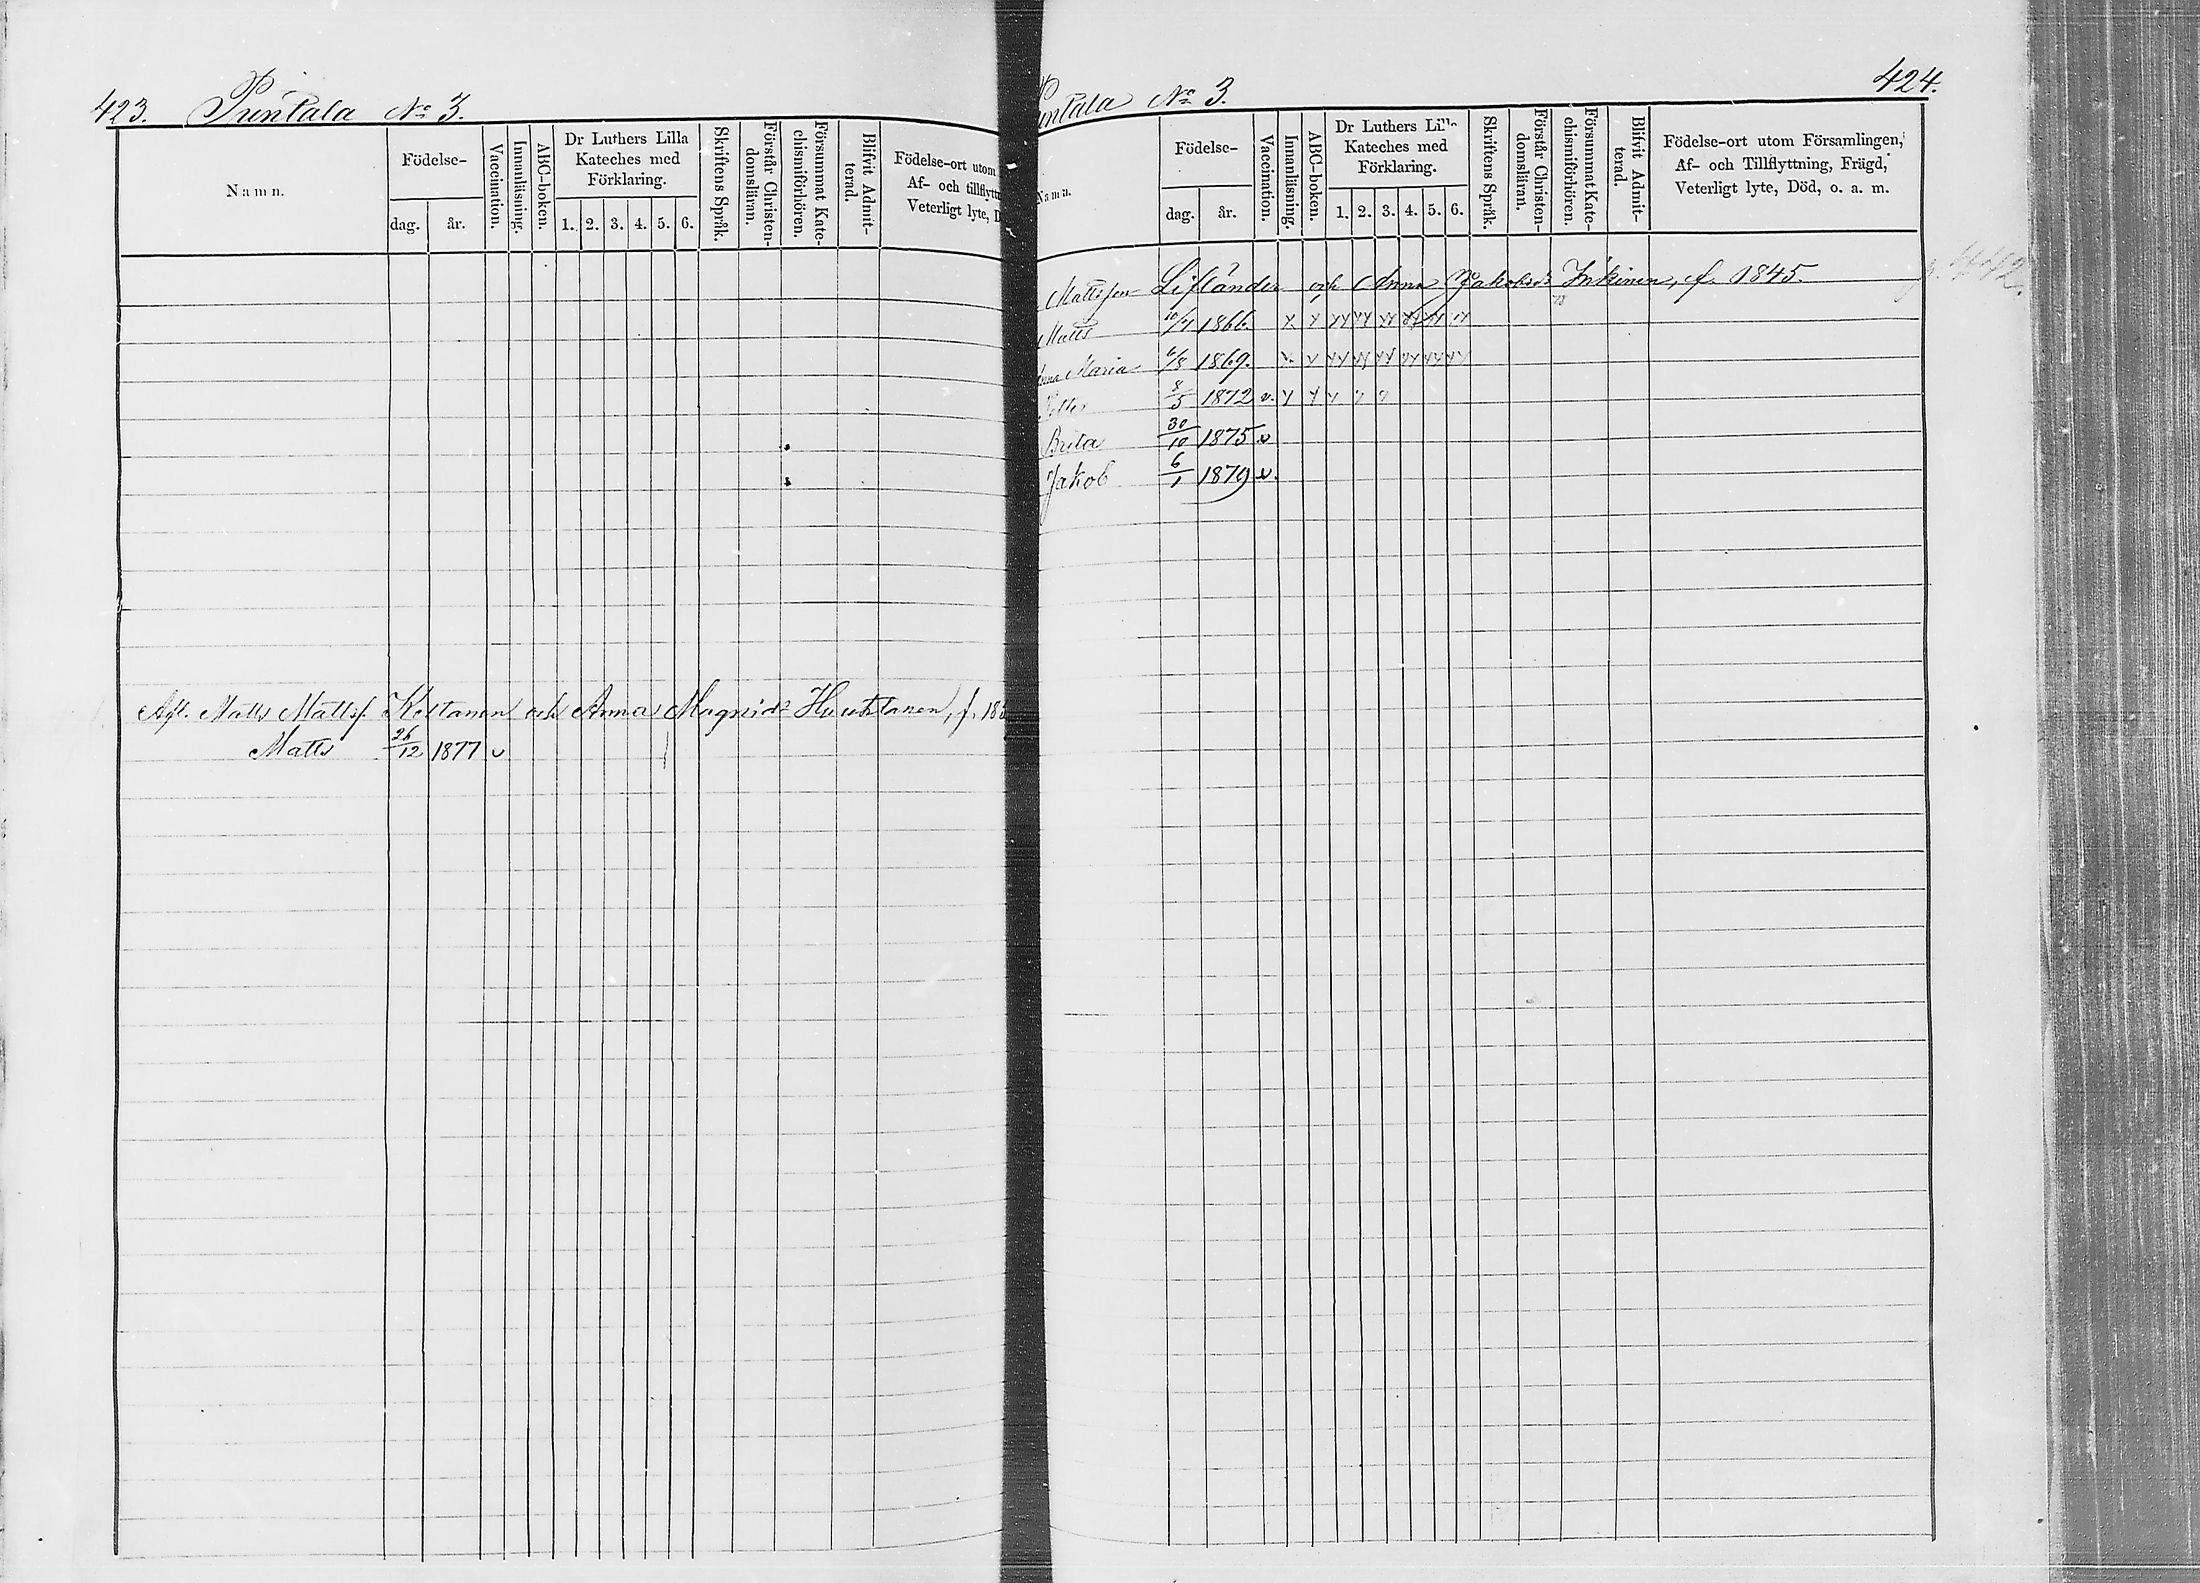 423. Puntala No 3.
Namn.
Födelse-
dag.
år.
Vaccination.
Innanläsning.
ABC-boken.
Dr Luthers Lilla
Kateches med
Förklaring.
1. 2. 3. 4. 5. 6.
Skriftens Språk.
Förstår Christen-
domsläran.
Försummat Kate-
chismiförhören.
Blifvit Admit-
terad.
Födelse-ort utom
Af- och tillflytt
Veterligt lyte, D
Matts Mattss. och Anna f. 18
Matts 26/12 1877 v
untala No 3. 424.
Namn.
Födelse-
dag.
år.
Vaccination.
Innanläsning.
ABC-boken.
Dr Luthers Lilla
Kateches med
Förklaring.
1. 2. 3. 4. 5. 6.
Skriftens Språk.
Förstår Christen-
domsläran.
Försummat Kate-
chismiförhören.
Blifvit Admit-
terad.
Födelse-ort utom Församlingen,
Af- och Tillflyttning, Frägd,
Veterligt lyte, Död, o. a. m.
Mattsson Lifländer och Anna Jakobsdr Inkinen, f. 1845.
Matts 10/4 1866.
nna Maria 6/8 1869.
Petter 8/5 1872 v.
Brita 30/10 1875 v
Jakob 6/1 1879 v.